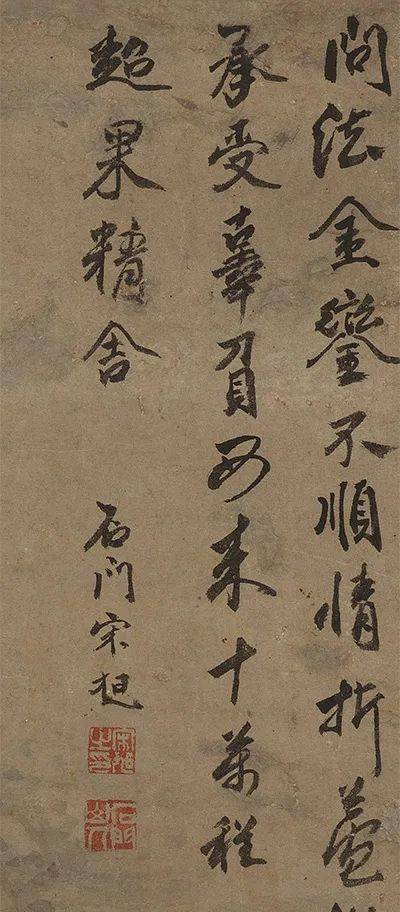 問法金鑾不順情折蘆
承受辜負西來十萬程
超果精舍
石門宋旭
宋旭之印